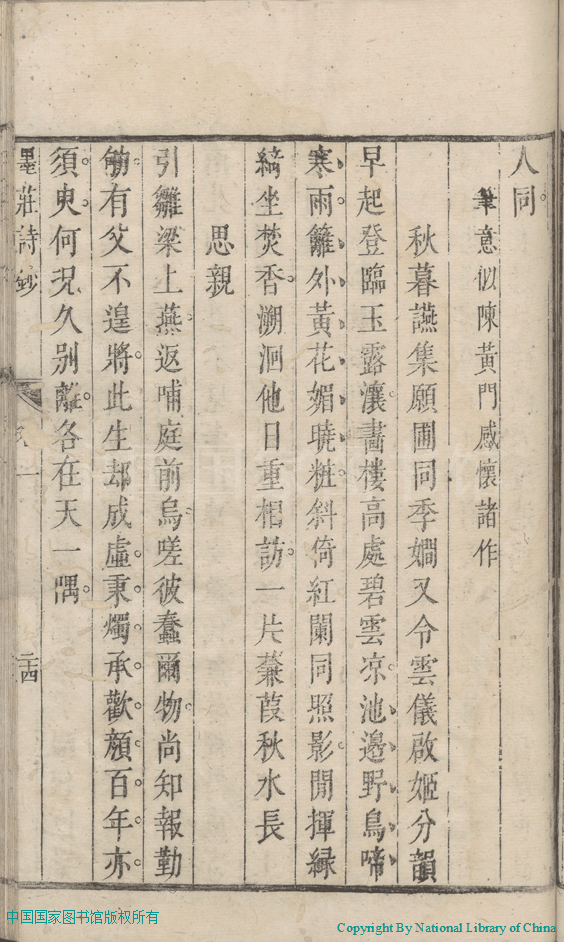 人同
筆意似陳黃門感懷諸作
秋暮讌集願圃同季嫻又令雲儀啟姬分韻
早起登臨玉露瀼畵樓高處碧雲凉池邊野鳥啼
寒雨籬外黃花媚曉粧斜倚紅闌同照影閒揮緑
綺坐焚香溯洄他日重相訪一片蒹葭秋水長
思親
引雛梁上燕返哺庭前烏嗟彼蠢爾物尚知報勤
劬有父不遑將此生却成虛秉燭承歡顏百年亦
須臾何况久别離各在天一隅
墨莊詩鈔
卷一
二十四
中国国家图书馆版权所有
Copyright By National Library of China